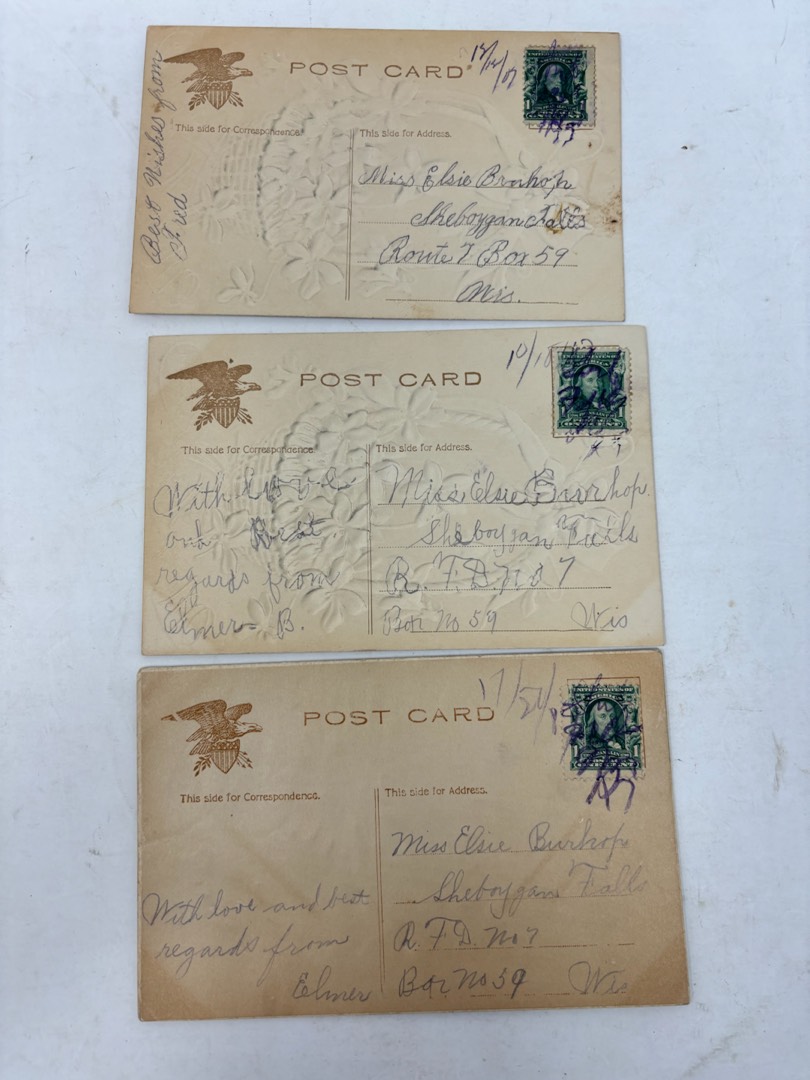 POST CARD
12/14/07
Best Wishes from
Fred
This side for Correspondence.
This side for Address.
Miss Elsie Burhop
Sheboygan Falls
Route 7 Box 59
Wis.
POST CARD
This side for Correspondence.
This side for Address.
With love
and Best
regards from
Elmer = B.
Miss Elsie Burhop.
Sheboygan Falls
R. F. D. No 7
Box No 59 Wis
POST CARD
This side for Correspondence.
This side for Address.
With love and best
regards from
Elmer
Miss Elsie Burhop
Sheboygan Falls
R. F. D. No 7
Box No 59 Wis